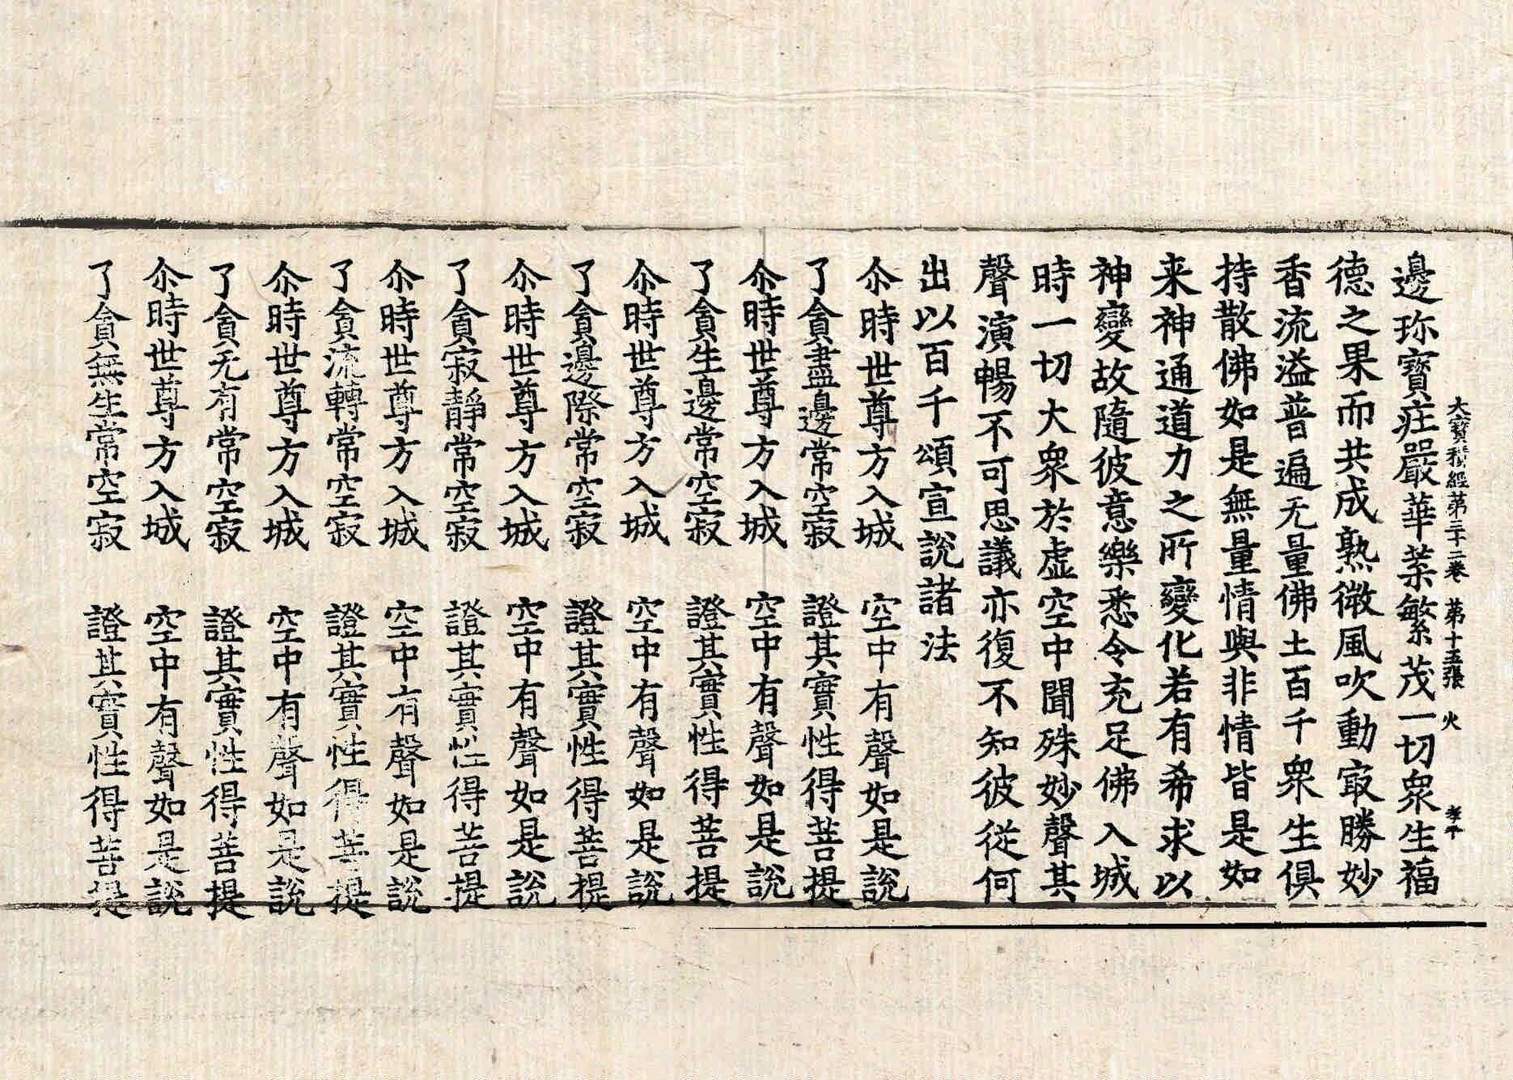 大寶積經第三十二卷 第十五張 火 孝平
邊珎寶莊嚴華菓繁茂一切衆生福
德之果而共成熟微風吹動㝡勝妙
香流溢普遍无量佛土百千衆生俱
持散佛如是無量情與非情皆是如
来神通道力之所變化若有希求以
神變故隨彼意樂悉令充足佛入城
時一切大衆於虛空中聞殊妙聲其
聲演暢不可思議亦復不知彼從何
出以百千頌宣說諸法
尒時世尊方入城 空中有聲如是說
了貪盡邊常空寂 證其實性得菩提
尒時世尊方入城 空中有聲如是說
了貪生邊常空寂 證其實性得菩提
尒時世尊方入城 空中有聲如是說
了貪邊際常空寂 證其實性得菩提
尒時世尊方入城 空中有聲如是說
了貪寂靜常空寂 證其實性得菩提
尒時世尊方入城 空中有聲如是說
了貪流轉常空寂 證其實性得菩提
尒時世尊方入城 空中有聲如是說
了貪无有常空寂 證其實性得菩提
尒時世尊方入城 空中有聲如是說
了貪無生常空寂 證其實性得菩提